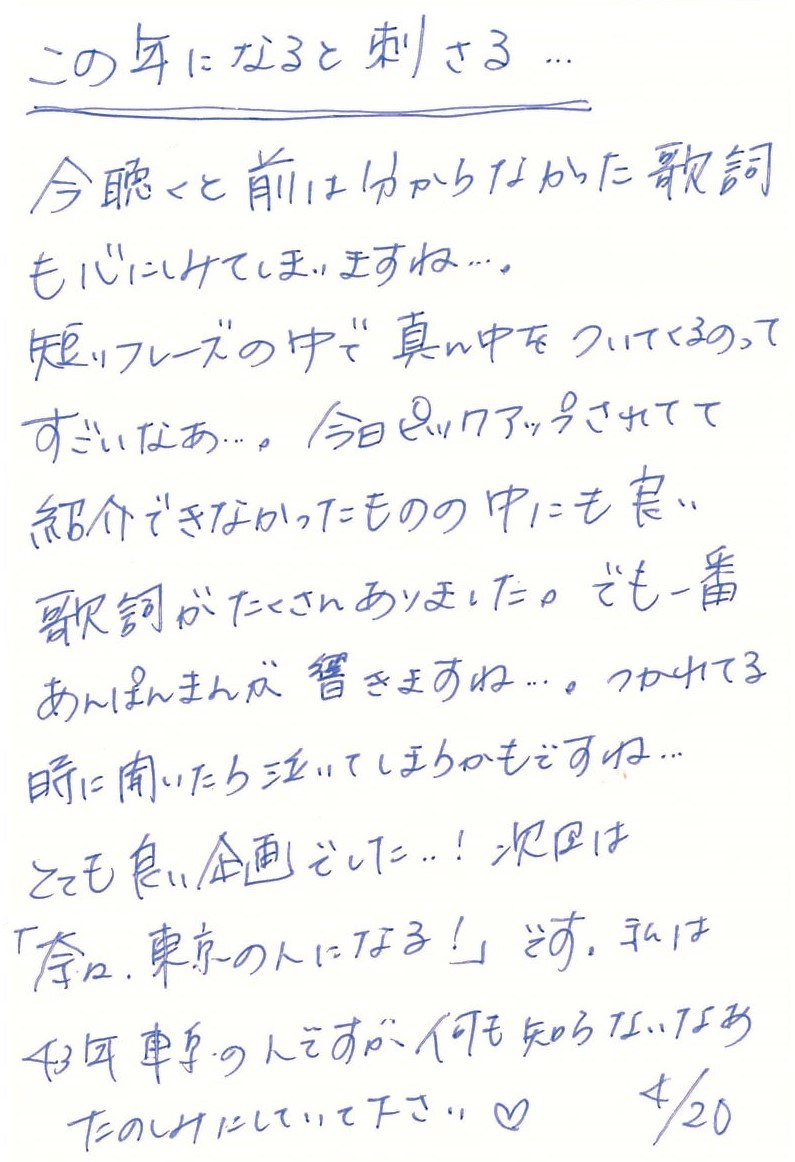 この年になると刺さる…
今聴くと前は分からなかった歌詞
も心にしみてしまいますね…。
短いフレーズの中で真ん中をついてくるのって
すごいなあ…。今日ピックアップされてて
紹介できなかったものの中にも良い
歌詞がたくさんありました。でも一番
あんぱんまんが響きますね…。つかれてる
時に聞いたら泣いてしまうかもですね…
とても良い企画でした..！次回は
「奈口、東京の人になる！」です。私は
43年東京の人ですが、何も知らないなあ
たのしみにしていて下さい♡ 4/20